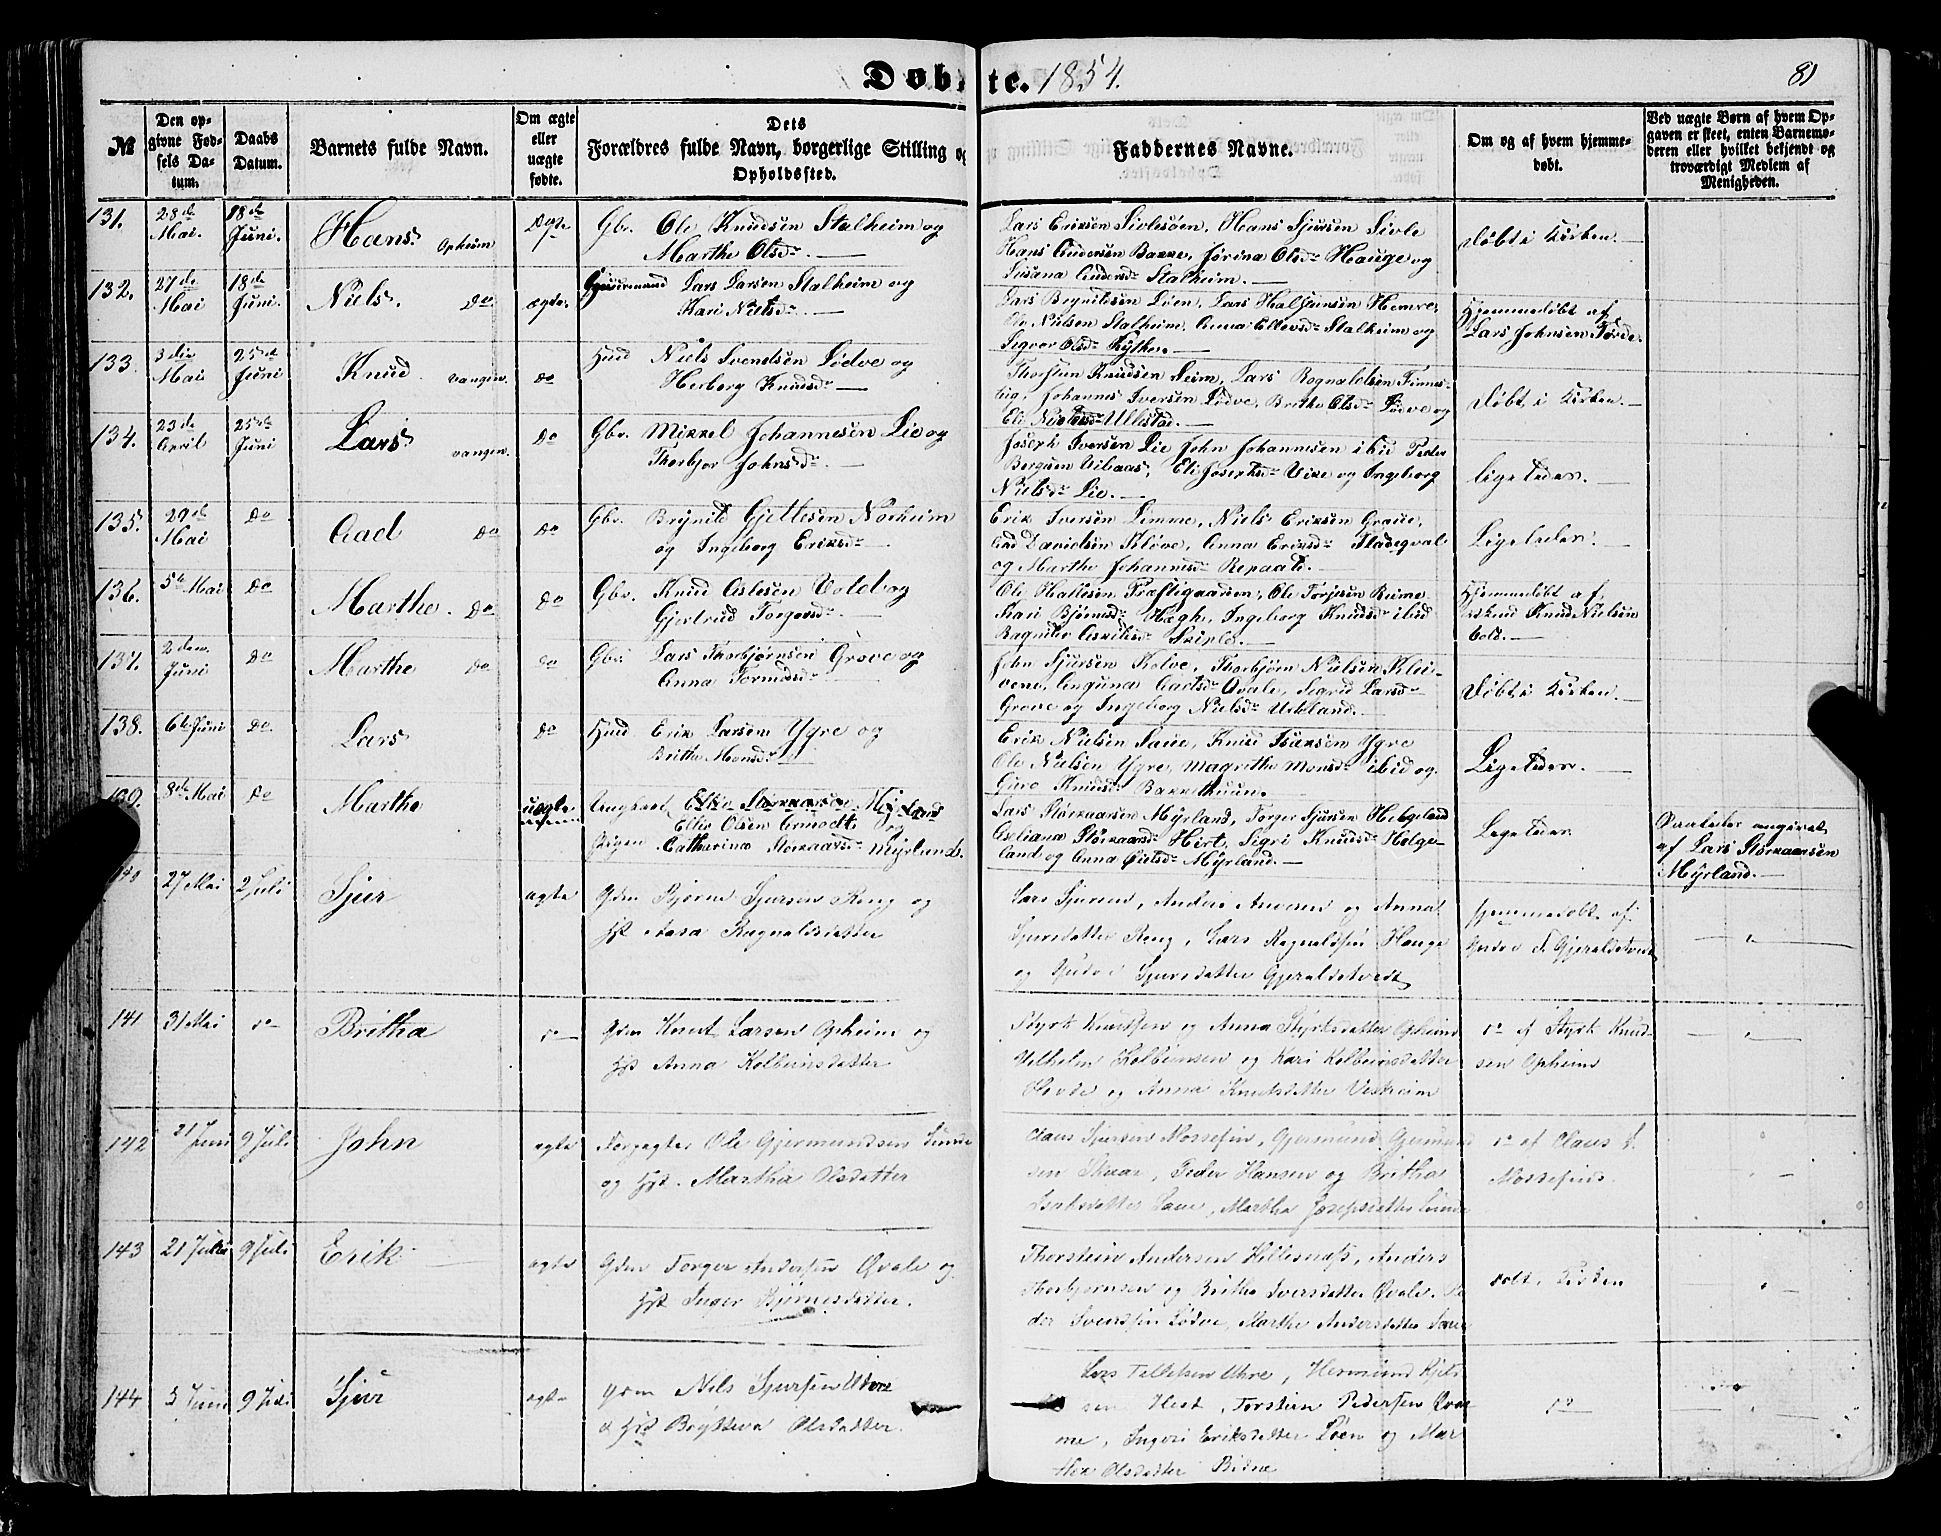 Døbte. 1854.
81
№
Den opgivne Fødsels Datum.
Daabs Datum.
Barnets fulde Navn.
Om ægte eller uægte fødte.
Dets Forældres fulde Navn, borgerlige Stilling og Opholdssted.
Faddernes Navne.
Om og af hvem hjemmedøbt.
Ved uægte Børn af hvem Opgaven er skeet, enten Barnemoderen eller hvilket bekjendt og troværdigt Medlem af Menigheden.
131. 28de Mai. 18de Juni. Hans. Opheim Ægte
Gbr. Ole Knudsen Stalheim og
Marthe Olsdr.
Lars Eriksen Sivlesøen, Hans Sjursen Sivle
Hans Andersen Bakke, Jørina Olsdr Hauge og
Susana Andersdr Stalheim.
Døbt i Kirken.
132. 27de Mai 18de Juni. Niels. Do ægte.
Gaardmand Lars Larsen Stalheim og
Kari Nielsdr.
Lars Brynildsen Løen, Lars Halsteinsen Hemre,
Ole Nielsen Stalheim, Anna Ellevsdr Stalheim og
Sygvor Olsdr Kythe.
Hjemmedøbt af
Lars Johnsen Førde.
133. 3die Mai 25de Juni Knud Vangen. Do
Huusmd Niels Svendsen Lødve og
Herborg Knudsdr
Thorstein Knudsen Seim, Lars Rognaldsen Finnes-
lig, Johannes Iversen Lødve, Britha Olsdr Lødve og
Eli Nielsdr Ullestad.
Døbt i Kirken.
134. 23de April 25de Juni Lars Vangen. Do
Gbr. Mikkel Johannesen Lie og
Thorbjor Johnsdr.
Joseph Iversen Lie John Johannesen ibid Peder
Bergesen Aibaas, Eli Josephsdr Vike og Ingeborg
Nielsdr Lie.
ligeledes.
135. 29de Mai Do Aad Do Do
Gbr. Brynild Gjettesen Norheim
og Ingeborg Eriksdr
Erik Iversen Limme, Niels Eriksen Graue,
Aad Davidsen Kløve, Anna Eriksdr Fladeqval
og Marthe Johannesdr Repaate.
Ligeledes.
136. 5te Mai Do Marthe. Do Do
Gbr. Knud Aslesen Vold og
Gjertrud Torgersdr.
Ole Hallesen Præstegaarden, Ole Torjesen Reime
Kari Bjørnsdr Hægh, Ingeborg Knudsdr ibid
Ragnilde Askildsdr Skiple.
Hjemmedøbt af
Knud Nielsen
Vold.
137. 2den Juni Do Marthe Do Do
Gbr. Lars Thorbjørnsen Grove og
Anna Tormodsdr
John Sjursen Kolve, Thorbjørn Nielsen Klei-
vene, Anguna Aadsdr Qvale, Segrid Larsdr
Grove og Ingeborg Nielsdr Urdland.
Døbt i Kirken.
138. 6te Juni Do. Lars Do
Huusmd Erik Larsen Ygre og
Britha Monsdr
Erik Nielsen Saue, Knud Isaksen Ygre
Ole Nielsen Ygre, Magrethe Monsdr ibid og
Guro Knudsdr Bakkethuun.
Ligeledes.
139. 8de Mai Do Marthe uægte
Ungkarl Eltie Størkaarsen Myrland
Eltiv Olsen Ermodt og
Pigen Catharina Størkaarsdr Myrland.
Lars Størkaarsen Myrland, Torger Sjursen Helgeland
Axliana Størkaarsdr Hirt, Segri Knudsdr Helge-
land og Anna Olsdr Myrland.
Ligeledes
Saaledes angivet
af Lars Størkaarsen
Myrland.
140 27 Mai 2 Juli Sjur ægte
Gdm Bjørne Sjursen Reng og
Hst Aasa Rognaldsdatter
Lars Sjursen, Anders Andersen og Anna
Sjursdatter Reng, Lars Rognaldsen Hauge
og Gudve Sjursdatter Gjeraldstvedt
hjemmedøbt af
Gudve S. Gjeraldstvedt
— " —
141 31 Mai do Britha do
Gdm Knut Larsen Opheim og
Hst Anna Kolbeinsdatter
Styrk Knudsen og Anna Styrksdatter Opheim
Vilhelm Kolbeinsen og Kari Kolbeinsdatter
Hovde og Anna Knutsdatter Vestreim
do af Styrk Knud-
sen Opheim
— " —
142 21 Juni 9 Juli John ægte
Forpagter Ole Gjermundsen Lunde
og Hst. Martha Olsdatter
Claus Sjursen Mossefin, Gjermund Gjermund
sen Skaar, Peder Hansen og Britha
datter Saue, Martha Josepsdatter Lunde
do af Claus S.
Mossefind.
143 21 Juni 9 Juli Erik ægte
Gdm Torger Andersen Qvale og
Hst Inger Bjørnesdatter.
Thorstein Andersen Hellesnæss, Anders
Thorbjørnsen og Britha Iversdatter Qvale, Pe
der Svendsen Lødve, Marthe Andersdatter Saue
døbt i Kirken
144 3 Juni 9 Juli Sjur ægte
Gdm Nils Sjursen Uhre
& Hst Bryteva Olsdatter.
Lars Tellefsen Uhre, Hermund Kjels
sen Hest, Torstein Pedersen Qvar
me, Ingeri Eriksdatter Løen og Mar
tha Olsdatter Bidne
do